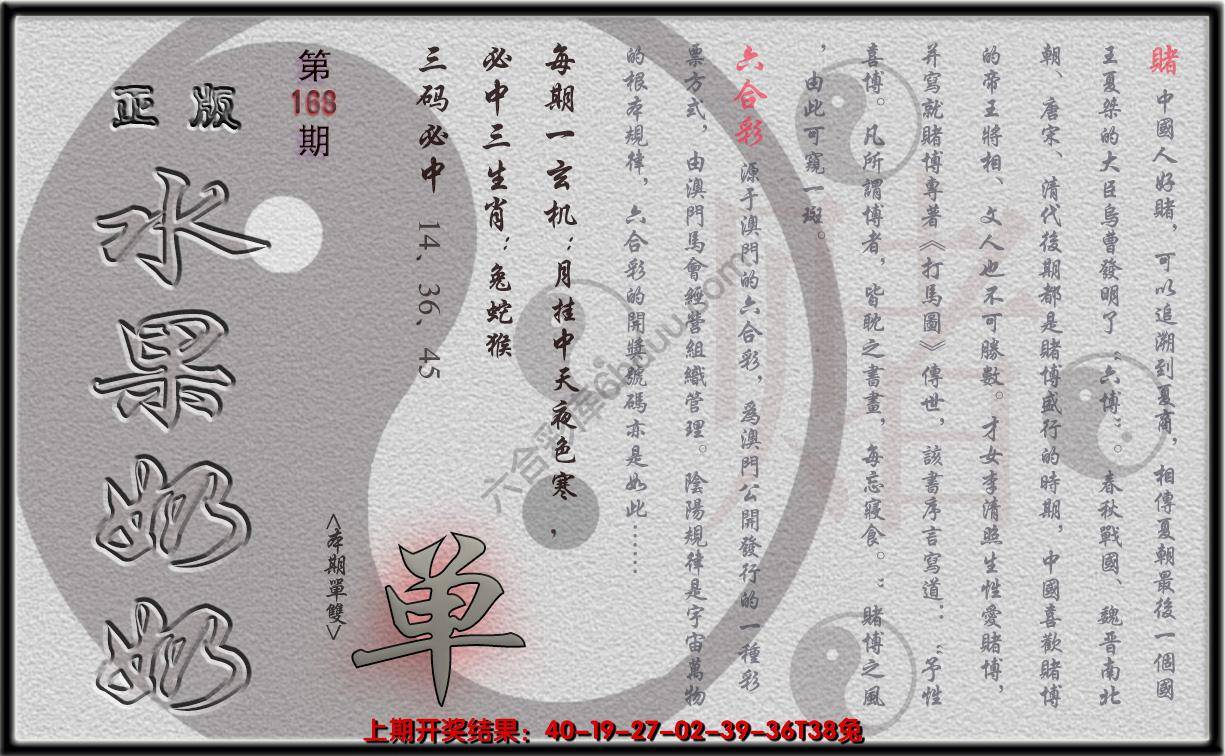 賭 中國人好賭，可以追溯到夏商，相傳夏朝最後一個國
王夏桀的大臣烏曹發明了“六博”。春秋戰國、魏晋南北
朝、唐宋、清代後期都是賭博盛行的時期，中國喜歡賭博
的帝王將相、文人也不可勝數。才女李清照生性愛賭博，
并寫就賭博專著《打馬圖》傳世，該書序言寫道：“予性
喜博。凡所謂博者，皆耽之書畫，每忘寢食。”賭博之風
，由此可窺一斑。
六合彩 源于澳門的六合彩，爲澳門公開發行的一種彩
票方式，由澳門馬會經營組織管理。陰陽規律是宇宙萬物
的根本規律，六合彩的開獎號碼亦是如此……
每期一玄机：月挂中天夜色寒，
必中三生肖：兔蛇猴
三码必中 14、36、45
第
168
期
正版
水果奶奶
<本期單雙>
单
六合彩库6huuu.com
上期开奖结果：40-19-27-02-39-36T38兔